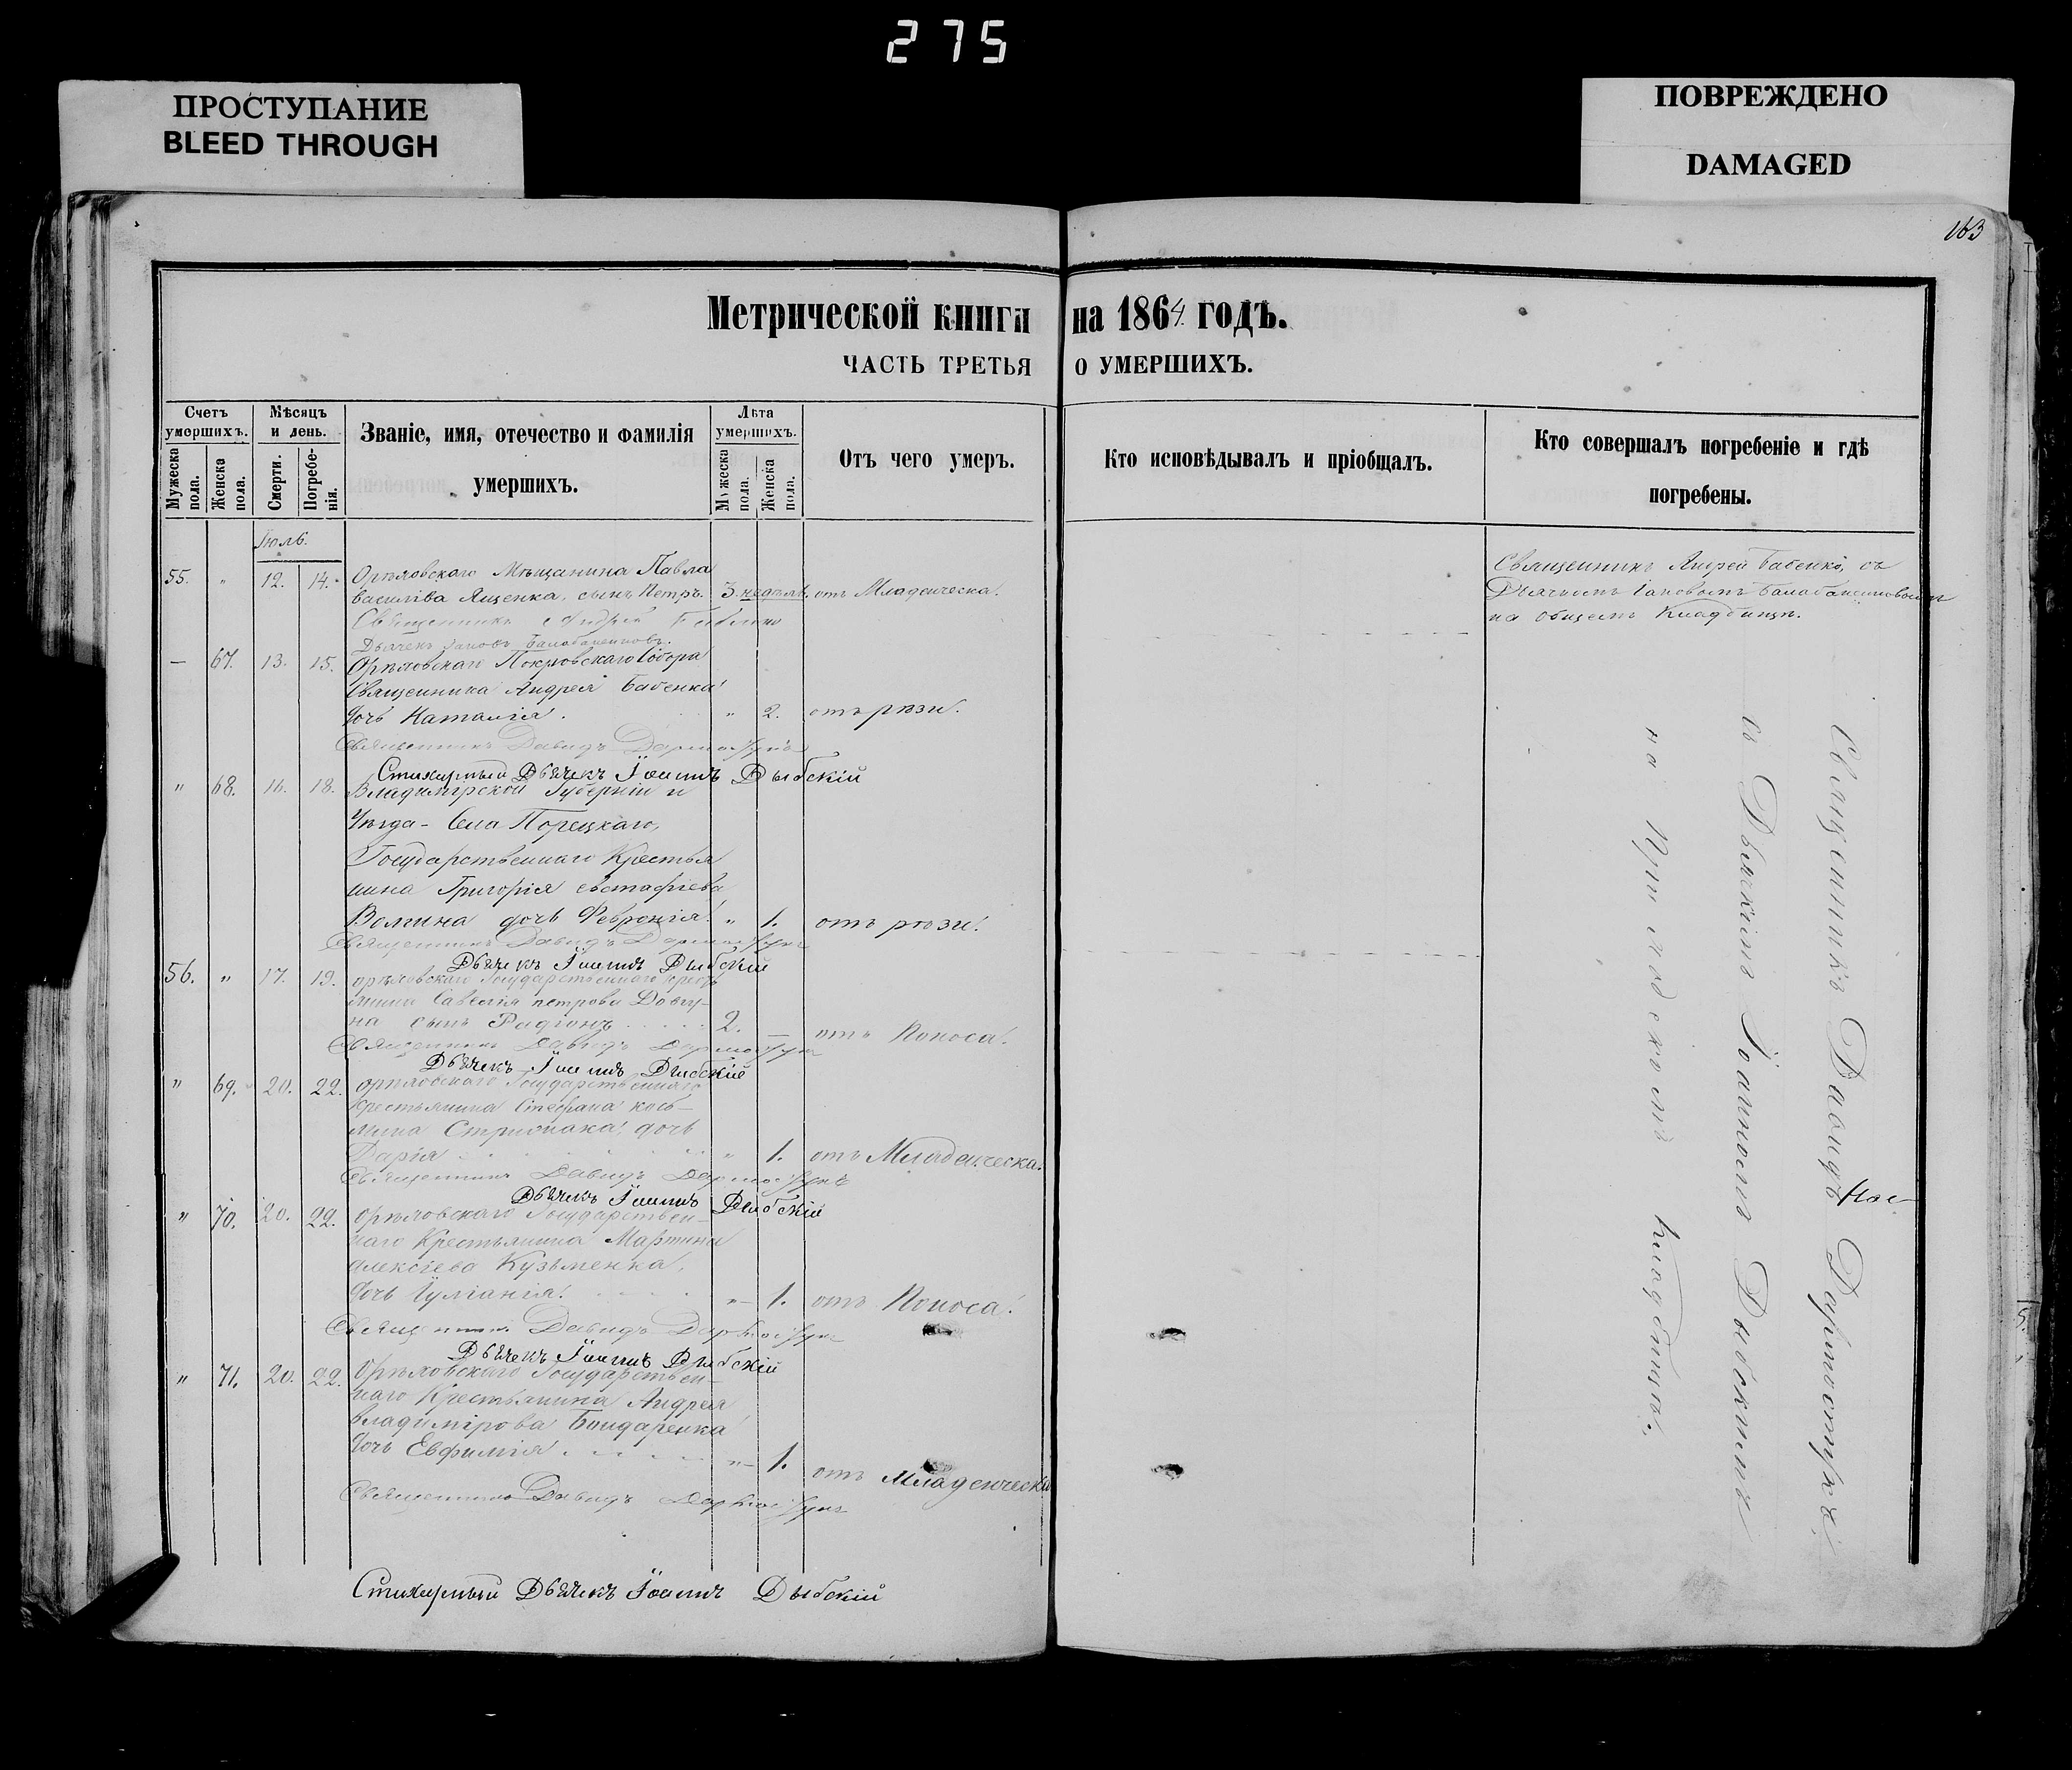 275
ПРОСТУПАНИЕ
BLEED THROUGH
ПОВРЕЖДЕНО
DAMAGED
163
Метрической книги на 1864 годъ.
ЧАСТЬ ТРЕТЬЯ О УМЕРШИХЪ.
Счетъ умершихъ.
Мужеска пола.
Женска пола.
Мѣсяцъ и день.
Смерти.
Погребенія.
Званіе, имя, отечество и фамилія умершихъ.
Лѣта умершихъ.
Мужеска пола.
Женска пола.
Отъ чего умеръ.
Кто исповѣдывалъ и пріобщалъ.
Кто совершалъ погребеніе и гдѣ погребены.
Іюль.
55. " 12. 14. Орѣховскаго Мѣщанина Павла
Василіева Яценка, сынъ Петръ. 3 недѣль. отъ Младенческа.
Священникъ Андрей Бабенко
Дьячекъ Іаковъ
— 67. 13. 15. Орѣховскаго Покровскаго Собора
Священника Андрея Бабенка
дочь Наталія. " 2. отъ рѣзи.
Священникъ Давидъ
Стихарный Дьячекъ Іоаннъ Дыбскій
" 68. 16. 18. Владимірской Губерніи и
Уѣзда - Села Порецкаго,
Государственнаго Крестья
нина Григорія Евстафіева
Волгина дочь Февронія. " 1. отъ рѣзи.
Священникъ Давидъ
Дьячекъ Іоаннъ Дыбскій
56. " 17. 19. Орѣховскаго Государственнаго крестья
нина Савелія петрова Довгу-
на сынъ Радіонъ 2. — отъ Поноса.
Священникъ Давидъ
Дьячекъ Іоаннъ Дыбскій
" 69. 20. 22. Орѣховскаго Государственнаго
крестьянина Стефана козь-
мина дочь
Дарія " 1. отъ Младенческа.
Священникъ Давидъ
Дьячекъ Іоаннъ Дыбскій
" 70. 20. 22. Орѣховскаго Государствен-
наго Крестьянина Мартина
Алексіева Кузьменка,
дочь Іуліанія. " 1. отъ Поноса.
Священникъ Давидъ
Дьячекъ Іоаннъ Дыбскій
" 71. 20. 22. Орѣховскаго Государствен-
наго Крестьянина Андрея
Владимірова Бондаренка
дочь Евфимія. " 1. отъ Младенческа
Священникъ Давидъ
Стихарный Дьячекъ Іоаннъ Дыбскій
Священникъ Андрей Бабенко, съ
Дьячкомъ Іаковомъ
на общемъ Кладбищѣ.
Священникъ Давидъ
съ Дьячкомъ Іоанномъ Дыбскимъ
на Приходскомъ кладбищѣ.